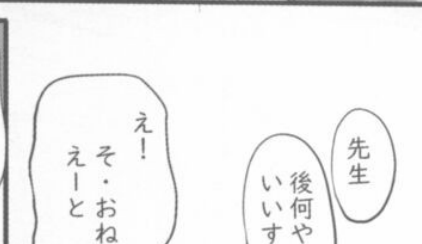 先生
後何や
いいす
え！
そ・おね
えーと